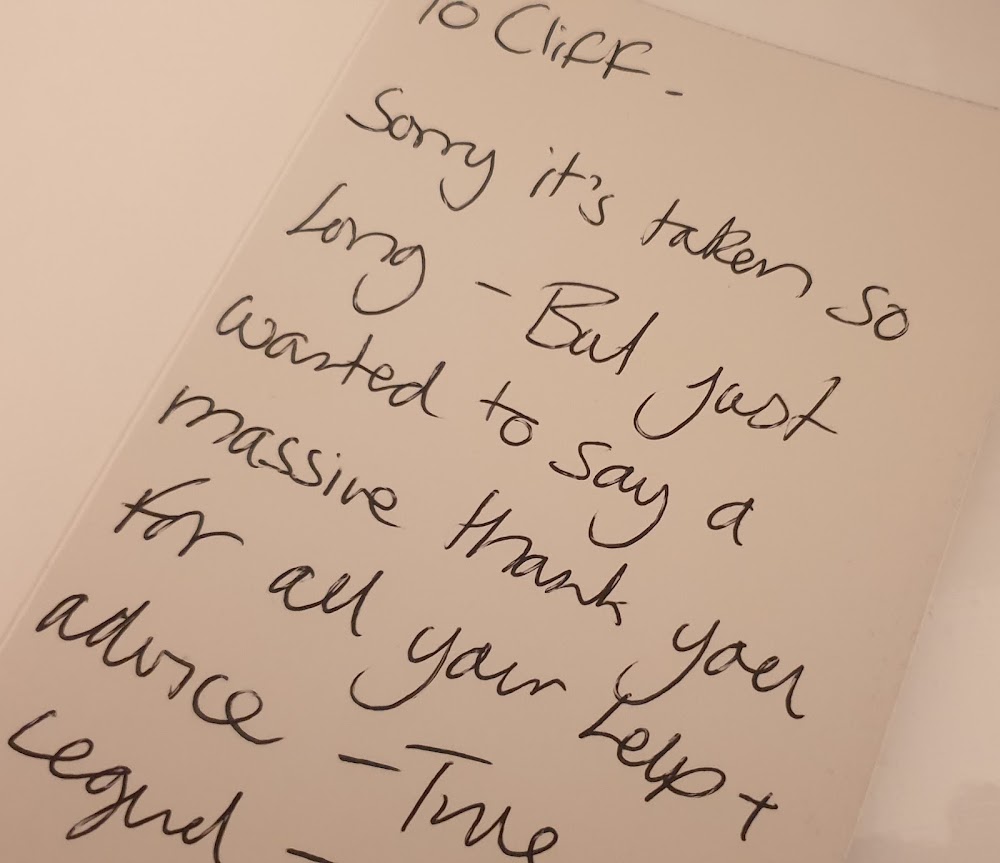 To Cliff -
Sorry it's taken so
Long - But just
wanted to say a
massive thank you
for all your help +
advice - True
Legend -